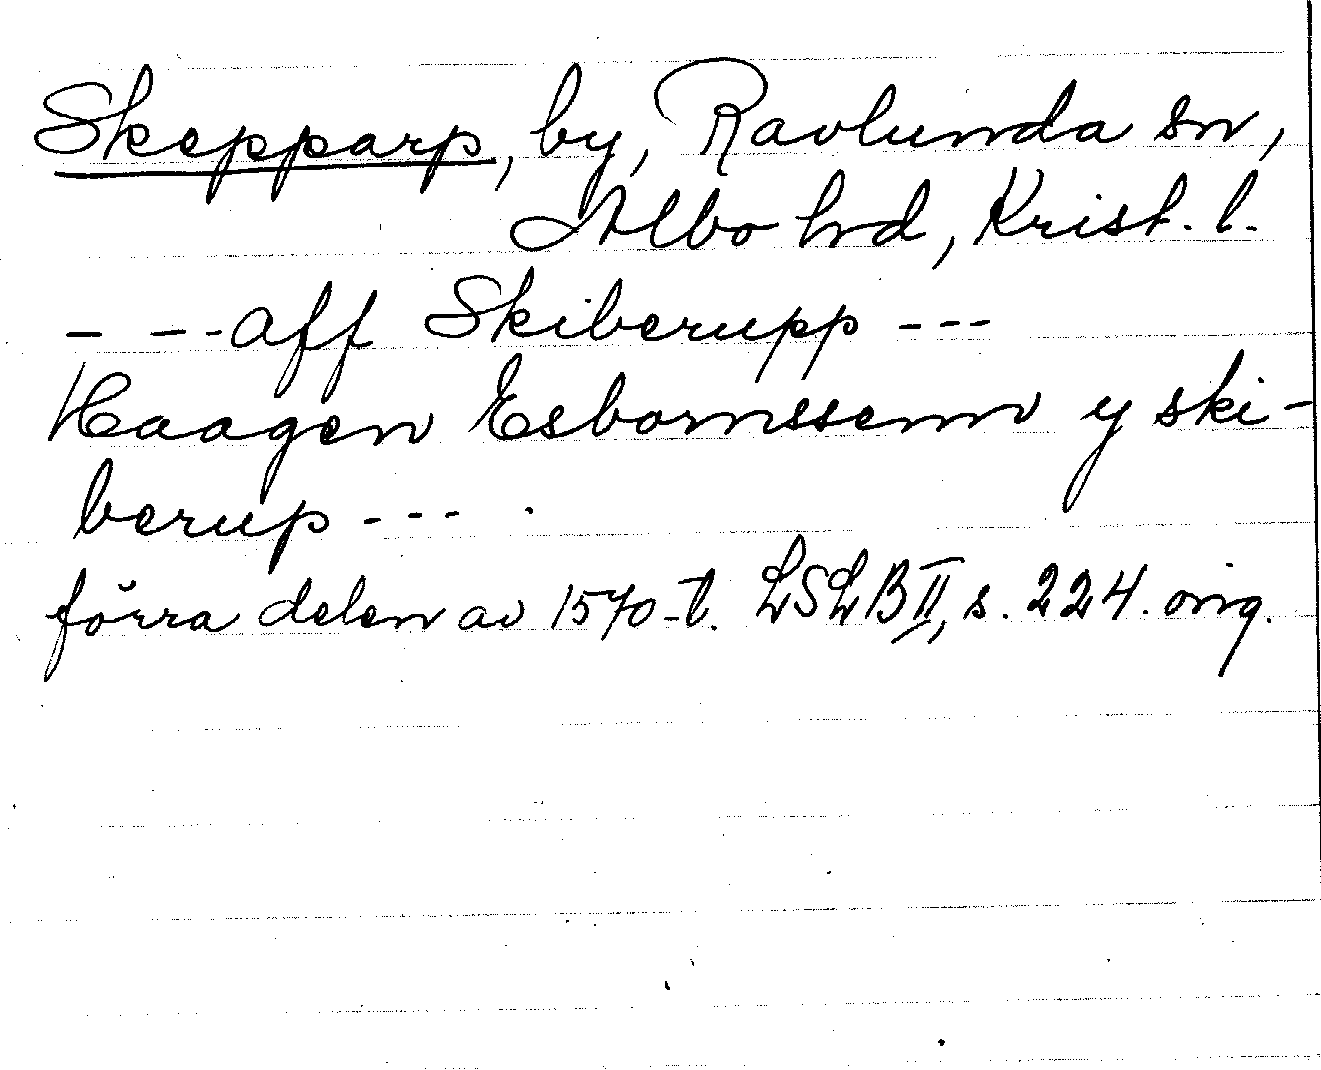 Skepparp, by, Ravlunda sn,
Albo hrd, Krist. l.
- --- aff Skiberupp ---
Haagen Esbornssenn y ski-
berup --- .
förra delen av 1570-t. LSLB II, s. 224. orig.